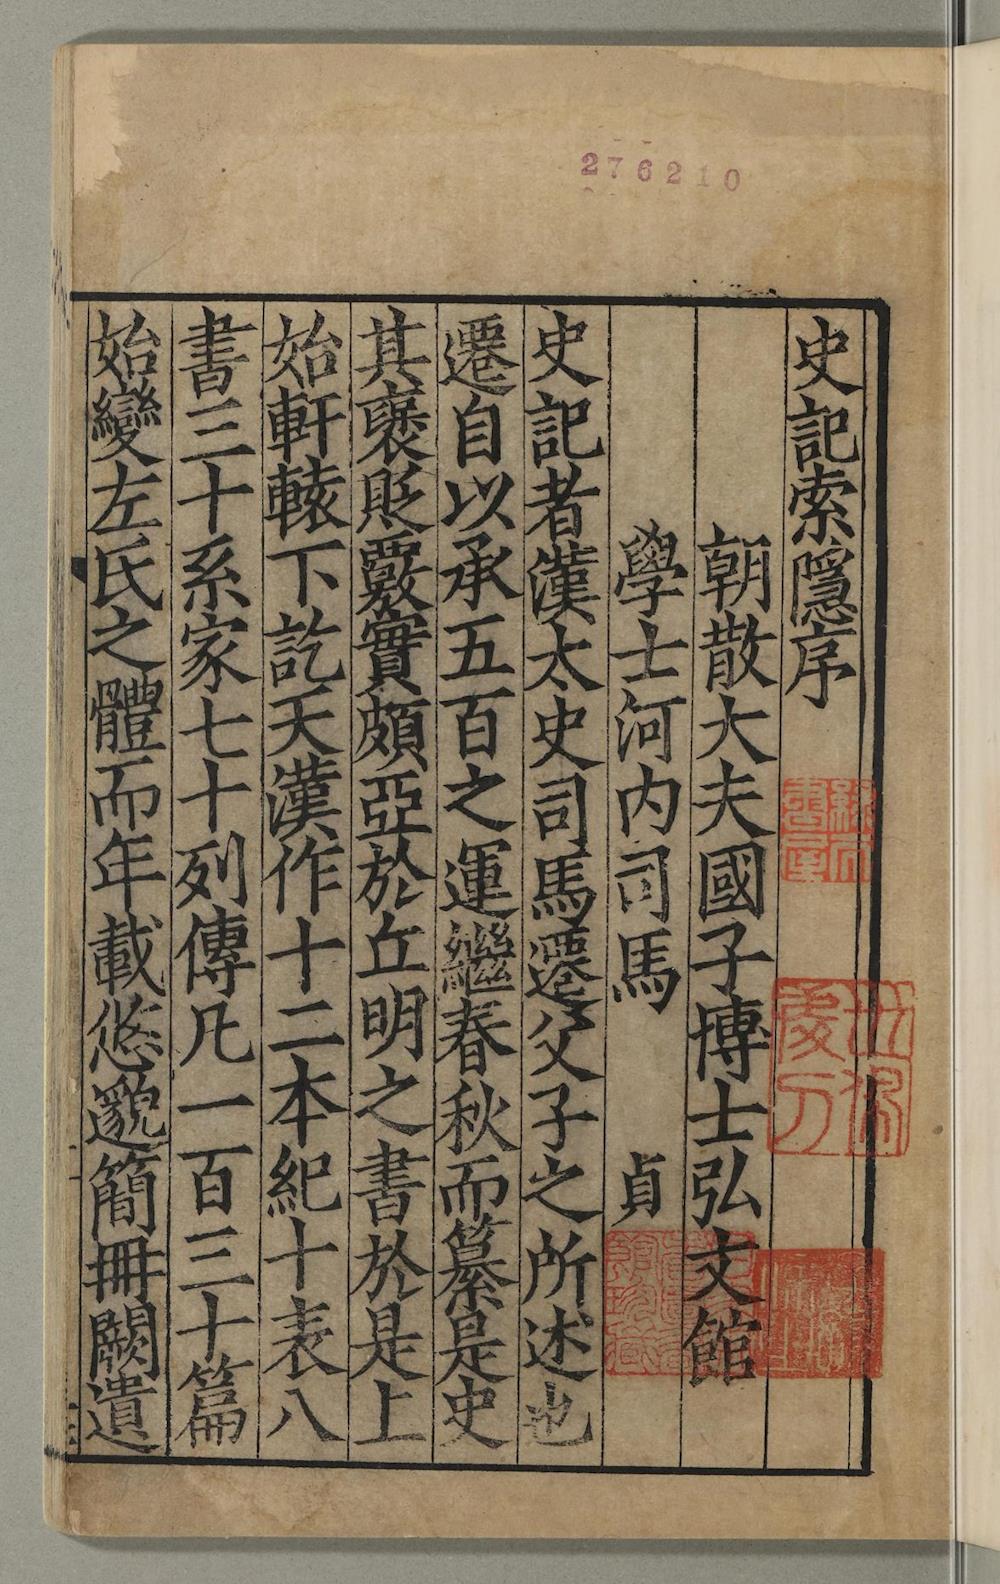 276210
史記索隱序
朝散大夫國子博士弘文館
學士河内司馬 貞
史記者漢太史司馬遷父子之所述也
遷自以承五百之運繼春秋而纂是史
其襃貶覈實頗亞於丘明之書於是上
始軒轅下訖天漢作十二本紀十表八
書三十系家七十列傳凡一百三十篇
始變左氏之體而年載悠邈簡冊闕遺